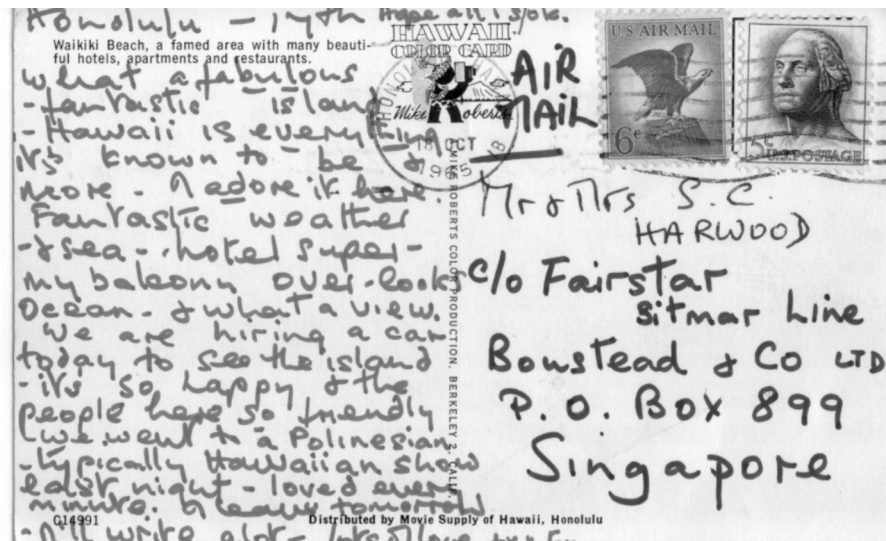 Honolulu - 17th Hope all is ok.
Waikiki Beach, a famed area with many beauti-
ful hotels, apartments and restaurants.
what a fabulous
- fantastic island
- Hawaii is everything
it's known to be &
more - I adore it here.
Fantastic weather
- & sea - hotel super -
my balcony over-looks
Ocean - & what a view.
We are hiring a car
today to see the island
- it's so happy & the
people here so friendly
- we went to a Polinesian
- typically Hawaiian show
last night - loved every
minute. I leave tomorrow
- I'll write alot - lots of love
C14991
HAWAII
COLOR CARD
Mike Roberts
HONOLULU
18 OCT
1965
MIKE ROBERTS COLOR PRODUCTION, BERKELEY 2, CALIF.
AIR
MAIL
U.S. AIR MAIL
6¢
5¢
U.S. POSTAGE
Mr & Mrs S.C.
HARWOOD
c/o Fairstar
Sitmar Line
Boustead & Co LTD
P.O. BOX 899
Singapore
Distributed by Movie Supply of Hawaii, Honolulu